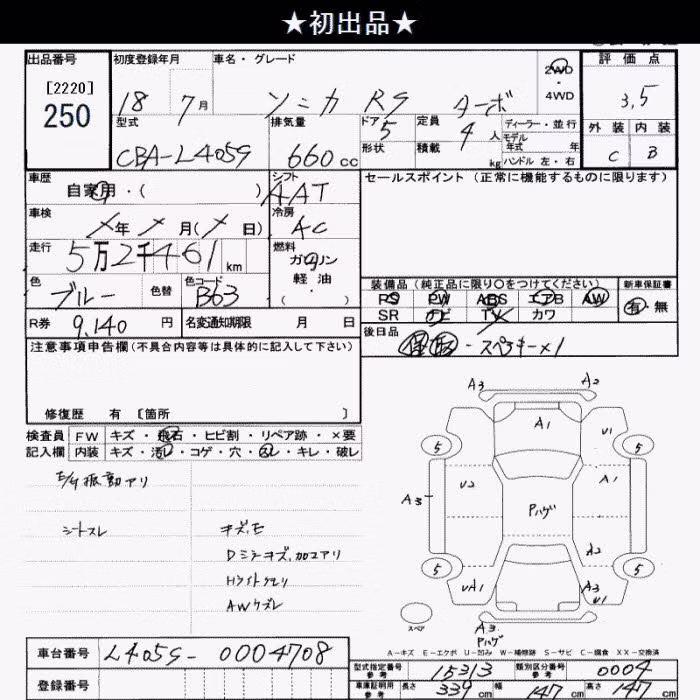 ★初出品★
出品番号 初度登録年月 車名・グレード 2WD・4WD 評価点
[2220]
250 18 7月 ソニカ RS ターボ 3.5
型式 排気量 ドア 5 定員 4人 ディーラー・並行 外装 内装
CBA-L405S 660cc 形状 積載 kg モデル年式 年 C B
ハンドル 左・右
車歴 シフト セールスポイント (正常に機能するものに限ります)
自家用・( ) AAT
車検 冷房
年 月( 日) AC
走行 燃料
5万2千461km ガソリン
軽油
・( )
色 色替 色コード 装備品 (純品に限り○をつけてください) 新車保証書
ブルー B63 PS PW ABS エアB AW 有・無
SR ナビ TV カワ
R券 9,140円 名変通知期限 月 日 後日品
スペアキー×1
注意事項申告欄(不具合内容等は具体的に記入して下さい)
修復歴 有 [箇所 ]
検査員 FW キズ・飛石・ヒビ割・リペア跡・×要
記入欄 内装 キズ・汚レ・コゲ・穴・スレ・キレ・破レ
E/g振動アリ
シートスレ キズ,モ
Dミラーキズ,加修アリ
Hライトクモリ
AWクズレ
A3 A2
A1 U1
5 5
U2 A1
A3 Pハゲ
A2
5 5
UA1 A3
U1
スペア A3
Pハゲ
A-キズ E-エクボ U-凹み W-補修跡 S-サビ C-腐食 XX-交換済
車台番号 L405S-0004708 型式指定番号 参考 15313 類別区分番号 参考 0004
登録番号 車庫証明用 参考 長さ 339cm 幅 147cm 高さ 147cm